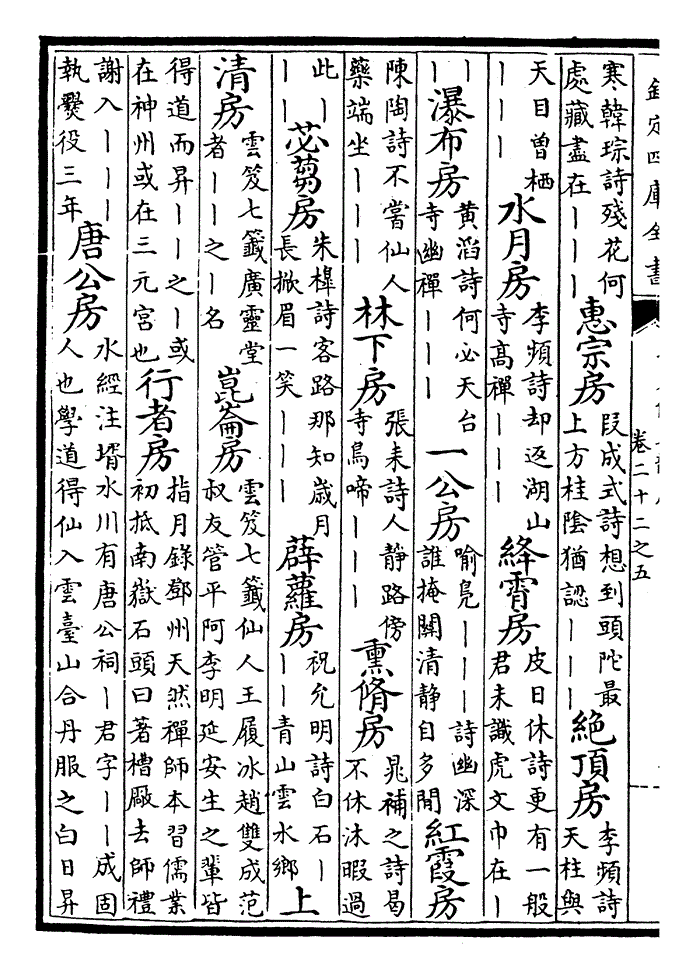 欽定四庫全書
卷二十二之五
寒韓琮詩殘花何處藏盡在｜｜｜惠宗房段成式詩想到頭陀最上方桂陰猶認｜｜｜絶頂房李頻詩天柱與
天目曽栖｜｜｜水月房李頻詩却返湖山寺高禪｜｜｜絳霄房皮日休詩更有一般君未識虎文巾在｜
｜｜瀑布房黄滔詩何必天台寺幽禪｜｜｜一公房喻鳬｜｜｜詩幽深誰掩關清静自多閒紅霞房
陳陶詩不嘗仙人藥端坐｜｜｜林下房張耒詩人静路傍寺鳥啼｜｜｜熏脩房晁補之詩曷不休沐暇過
此｜｜｜苾蒭房朱橰詩客路那知嵗月長掀眉一笑｜｜｜薜蘿房祝允明詩白石｜｜｜青山雲水鄉上
清房雲笈七籤廣靈堂者｜｜之｜名崑崙房雲笈七籤仙人王履冰趙雙成范叔友管平阿李明延安生之輩皆
得道而昇｜｜之｜或在神州或在三元宫也行者房指月錄鄧州天然禪師本習儒業初抵南嶽石頭曰著槽厰去師禮
謝入｜｜｜執爨役三年唐公房水經注壻水川有唐公祠｜君字｜｜成固人也學道得仙入雲臺山合丹服之白日昇